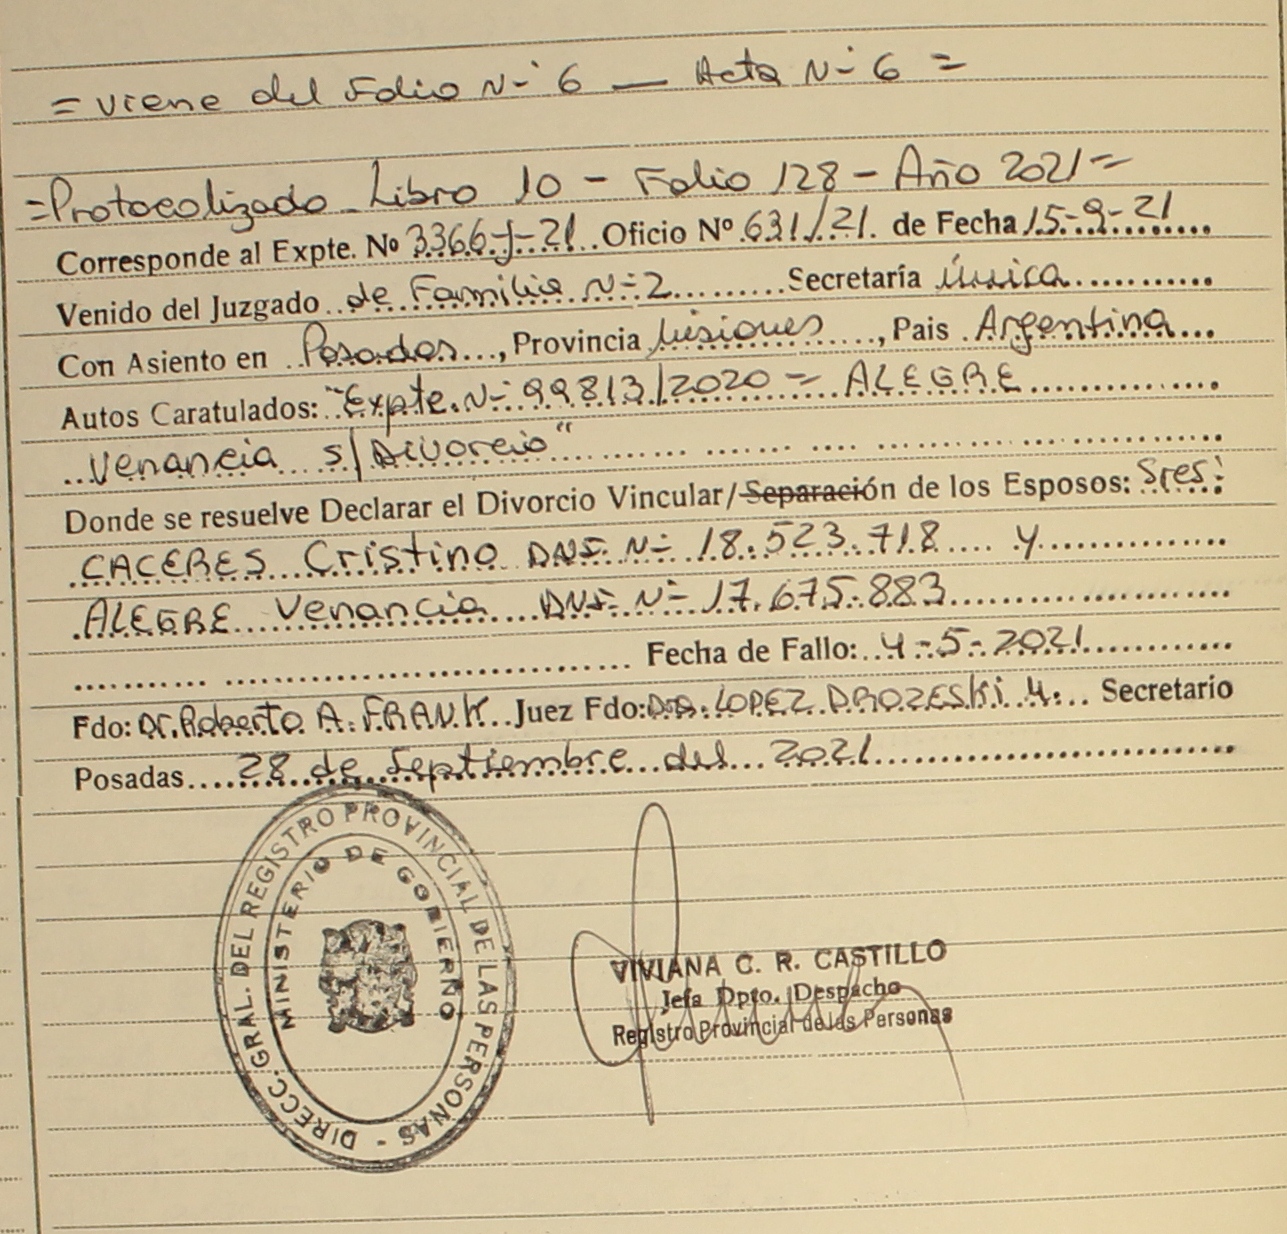 = viene del Folio N-° 6 — Acta N-° 6 =
=Protocolizado Libro 10 - Folio 128 - Año 2021=
Corresponde al Expte. Nº 3366-J-21 Oficio Nº 631/21. de Fecha 15-9-21
Venido del Juzgado de Familia N-° 2 Secretaría Única
Con Asiento en Posadas, Provincia Misiones, Pais Argentina
Autos Caratulados: "Expte. N-° 99813/2020 = ALEGRE
Venancia s/Divorcio"
Donde se resuelve Declarar el Divorcio Vincular/Separación de los Esposos: Sres:
CACERES Cristino DNI. N-° 18.523.718 y
ALEGRE Venancia DNI. N-° 17.675.883
Fecha de Fallo: 4-5-2021
Fdo: Dr. Roberto A. FRANK Juez Fdo: Dra. LOPEZ DROZESKI M. Secretario
Posadas 28 de Septiembre del 2021
DIRECC. GRAL. DEL REGISTRO PROVINCIAL DE LAS PERSONAS -
MINISTERIO DE GOBIERNO
VIVIANA C. R. CASTILLO
Jefa Dpto. Despacho
Registro Provincial de las Personas